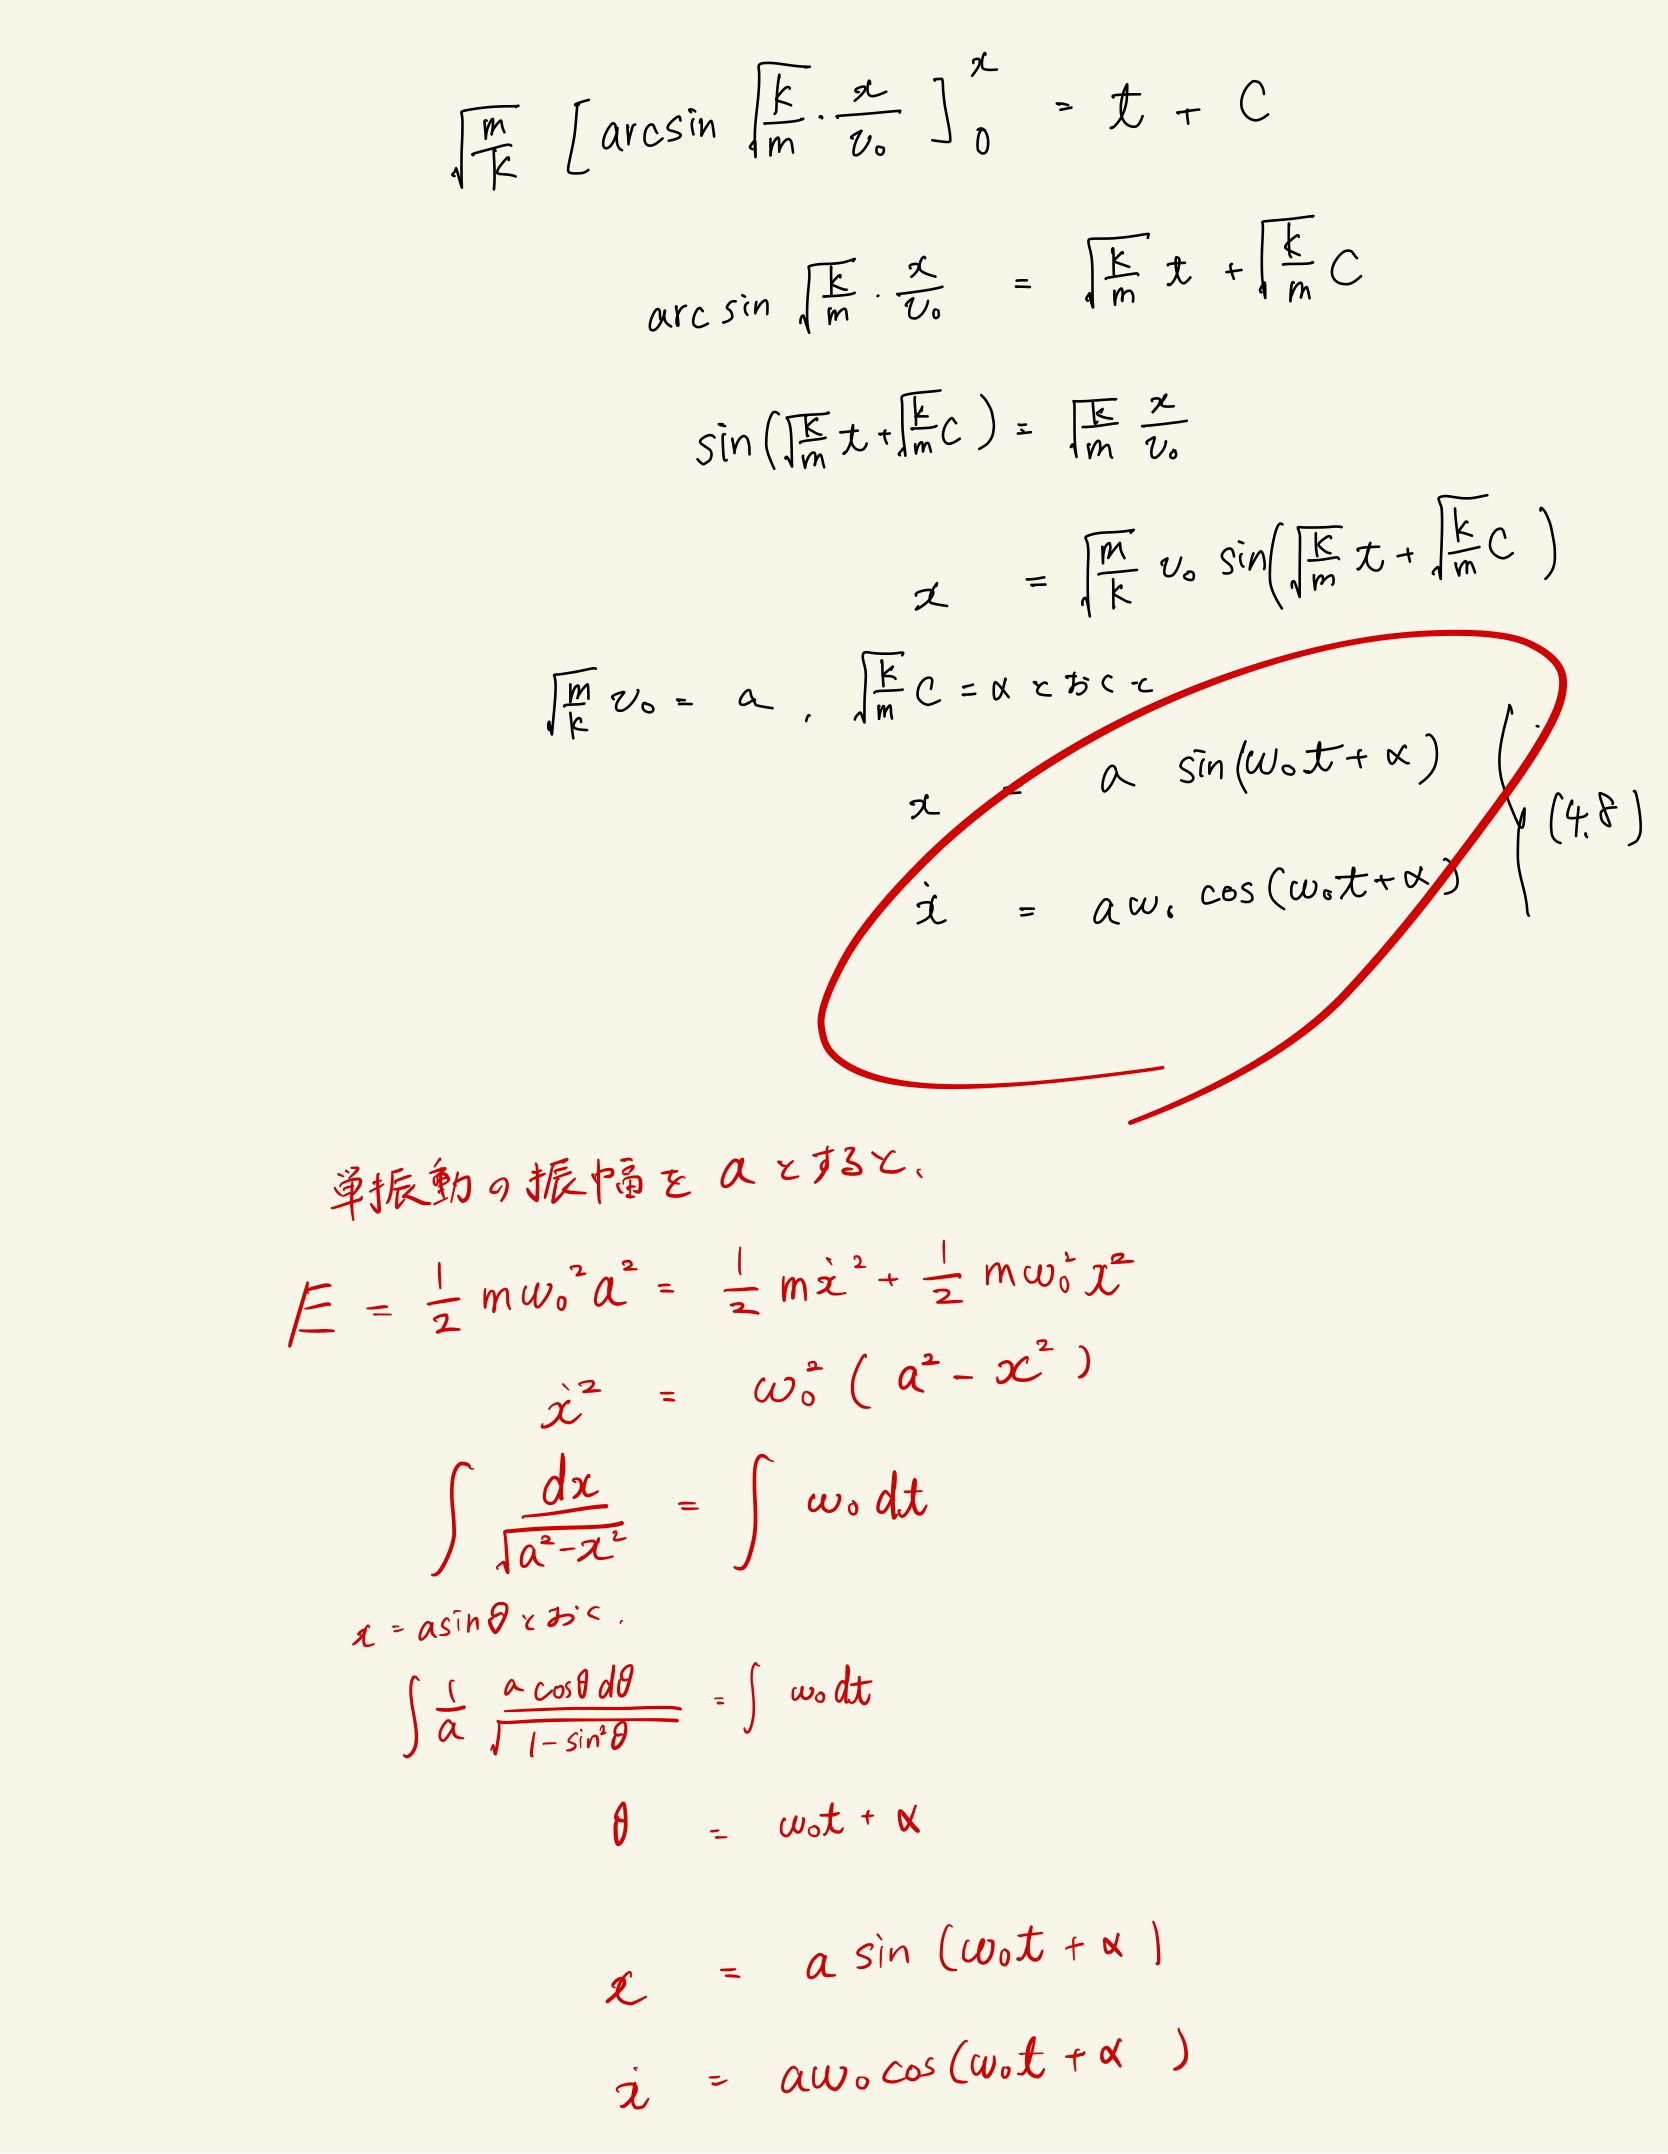 √(m/k) [arcsin √(k/m)・x/v₀]₀ˣ = t + C
arcsin √(k/m)・x/v₀ = √(k/m) t + √(k/m) C
sin(√(k/m) t + √(k/m) C) = √(k/m) x/v₀
x = √(m/k) v₀ sin(√(k/m) t + √(k/m) C)
√(m/k) v₀ = a , √(k/m) C = α とおくと
x = a sin(ω₀t + α)
(4.8)
ẋ = aω₀ cos(ω₀t + α)
単振動の振幅を a とすると、
E = 1/2 mω₀²a² = 1/2 mẋ² + 1/2 mω₀²x²
ẋ² = ω₀² (a² - x²)
∫ dx/√(a²-x²) = ∫ ω₀dt
x = asinθ とおく.
∫ 1/a a cosθ dθ/√(1-sin²θ) = ∫ ω₀dt
θ = ω₀t + α
x = a sin (ω₀t + α)
ẋ = aω₀ cos(ω₀t + α)